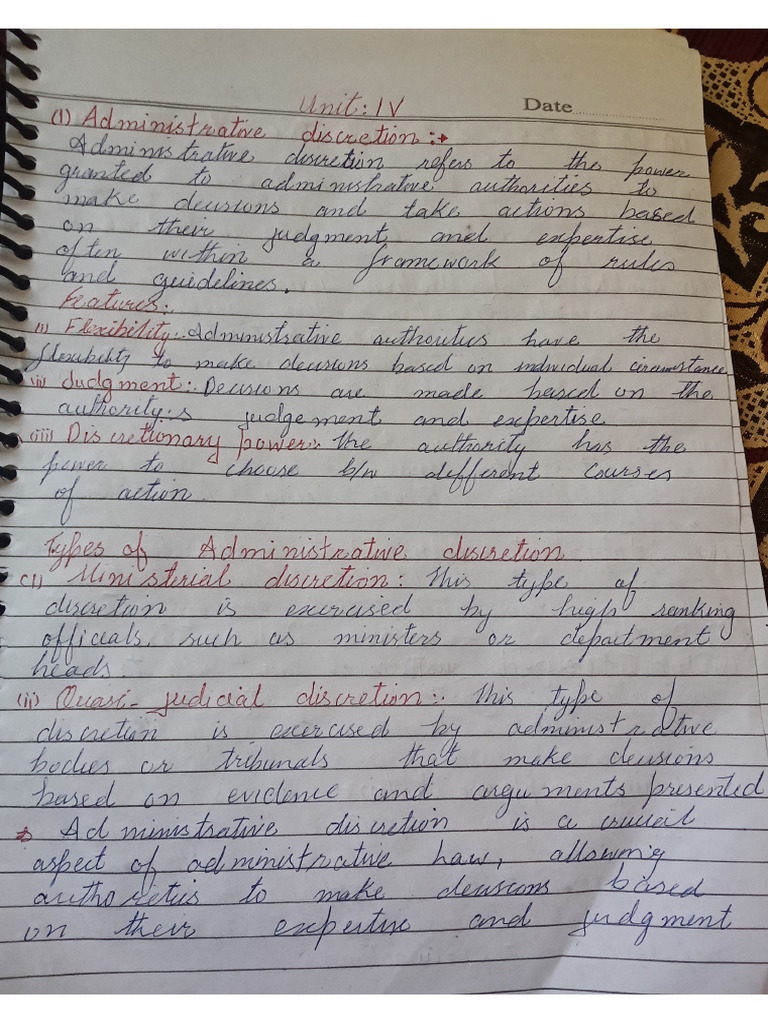 Unit: IV Date
(1) Administrative discretion :→
Administrative discretion refers to the power
granted to administrative authorities to
make decisions and take actions based
on their judgment, and expertise
often within a framework of rules
and guidelines.
Features:.
(i) Flexibility:. Administrative authorities have the
flexibility to make decisions based on individual circumstance
(ii) Judgment:. Decisions are made based on the
authority:s judgement and expertise
(iii) Discretionary power:. the authority has the
power to choose b/w different courses
of action.
Types of Administrative discretion
(i) Ministerial discretion: This type of
discretion is exercised by high ranking
officials, such as ministers or department
heads.
(ii) Quasi-judicial discretion:. This type of
discretion is exercised by administrative
bodies or tribunals that make decisions
based on evidence and arguments presented
Administrative discretion is a crucial
aspect of administrative law, allowing
authoreties to make decisions based
on their expertise and judgment